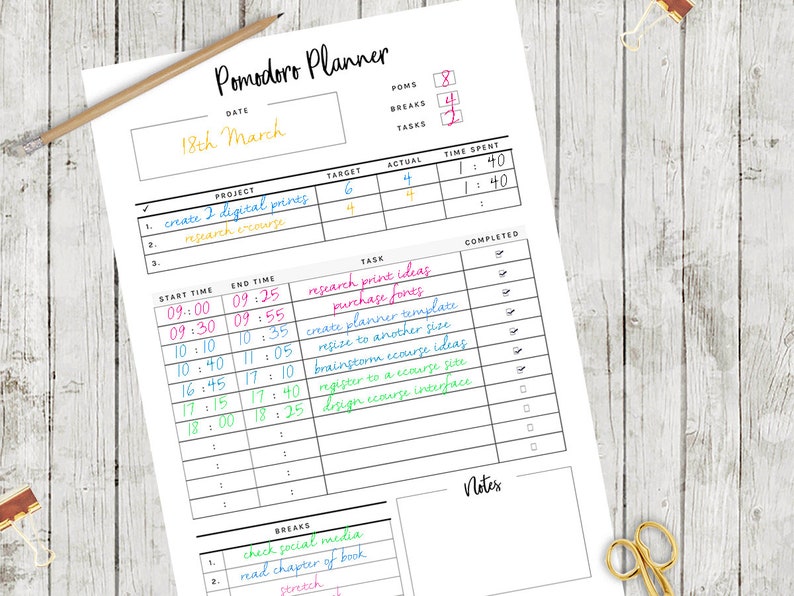 Pomodoro Planner
DATE
18th March
POMS 8
BREAKS 4
TASKS 2
✓ PROJECT TARGET ACTUAL TIME SPENT
1. create 2 digital prints 6 4 1 : 40
2. research e-course 4 4 1 : 40
3. :
START TIME END TIME TASK COMPLETED
09 : 00 09 : 25 research print ideas
09 : 30 09 : 55 purchase fonts
10 : 10 10 : 35 create planner template
10 : 40 11 : 05 resize to another size
16 : 45 17 : 10 brainstorm ecourse ideas
17 : 15 17 : 40 register to a ecourse site
18 : 00 18 : 25 design ecourse interface
: :
: :
: :
: :
BREAKS
1. check social media
2. read chapter of book
stretch
Notes